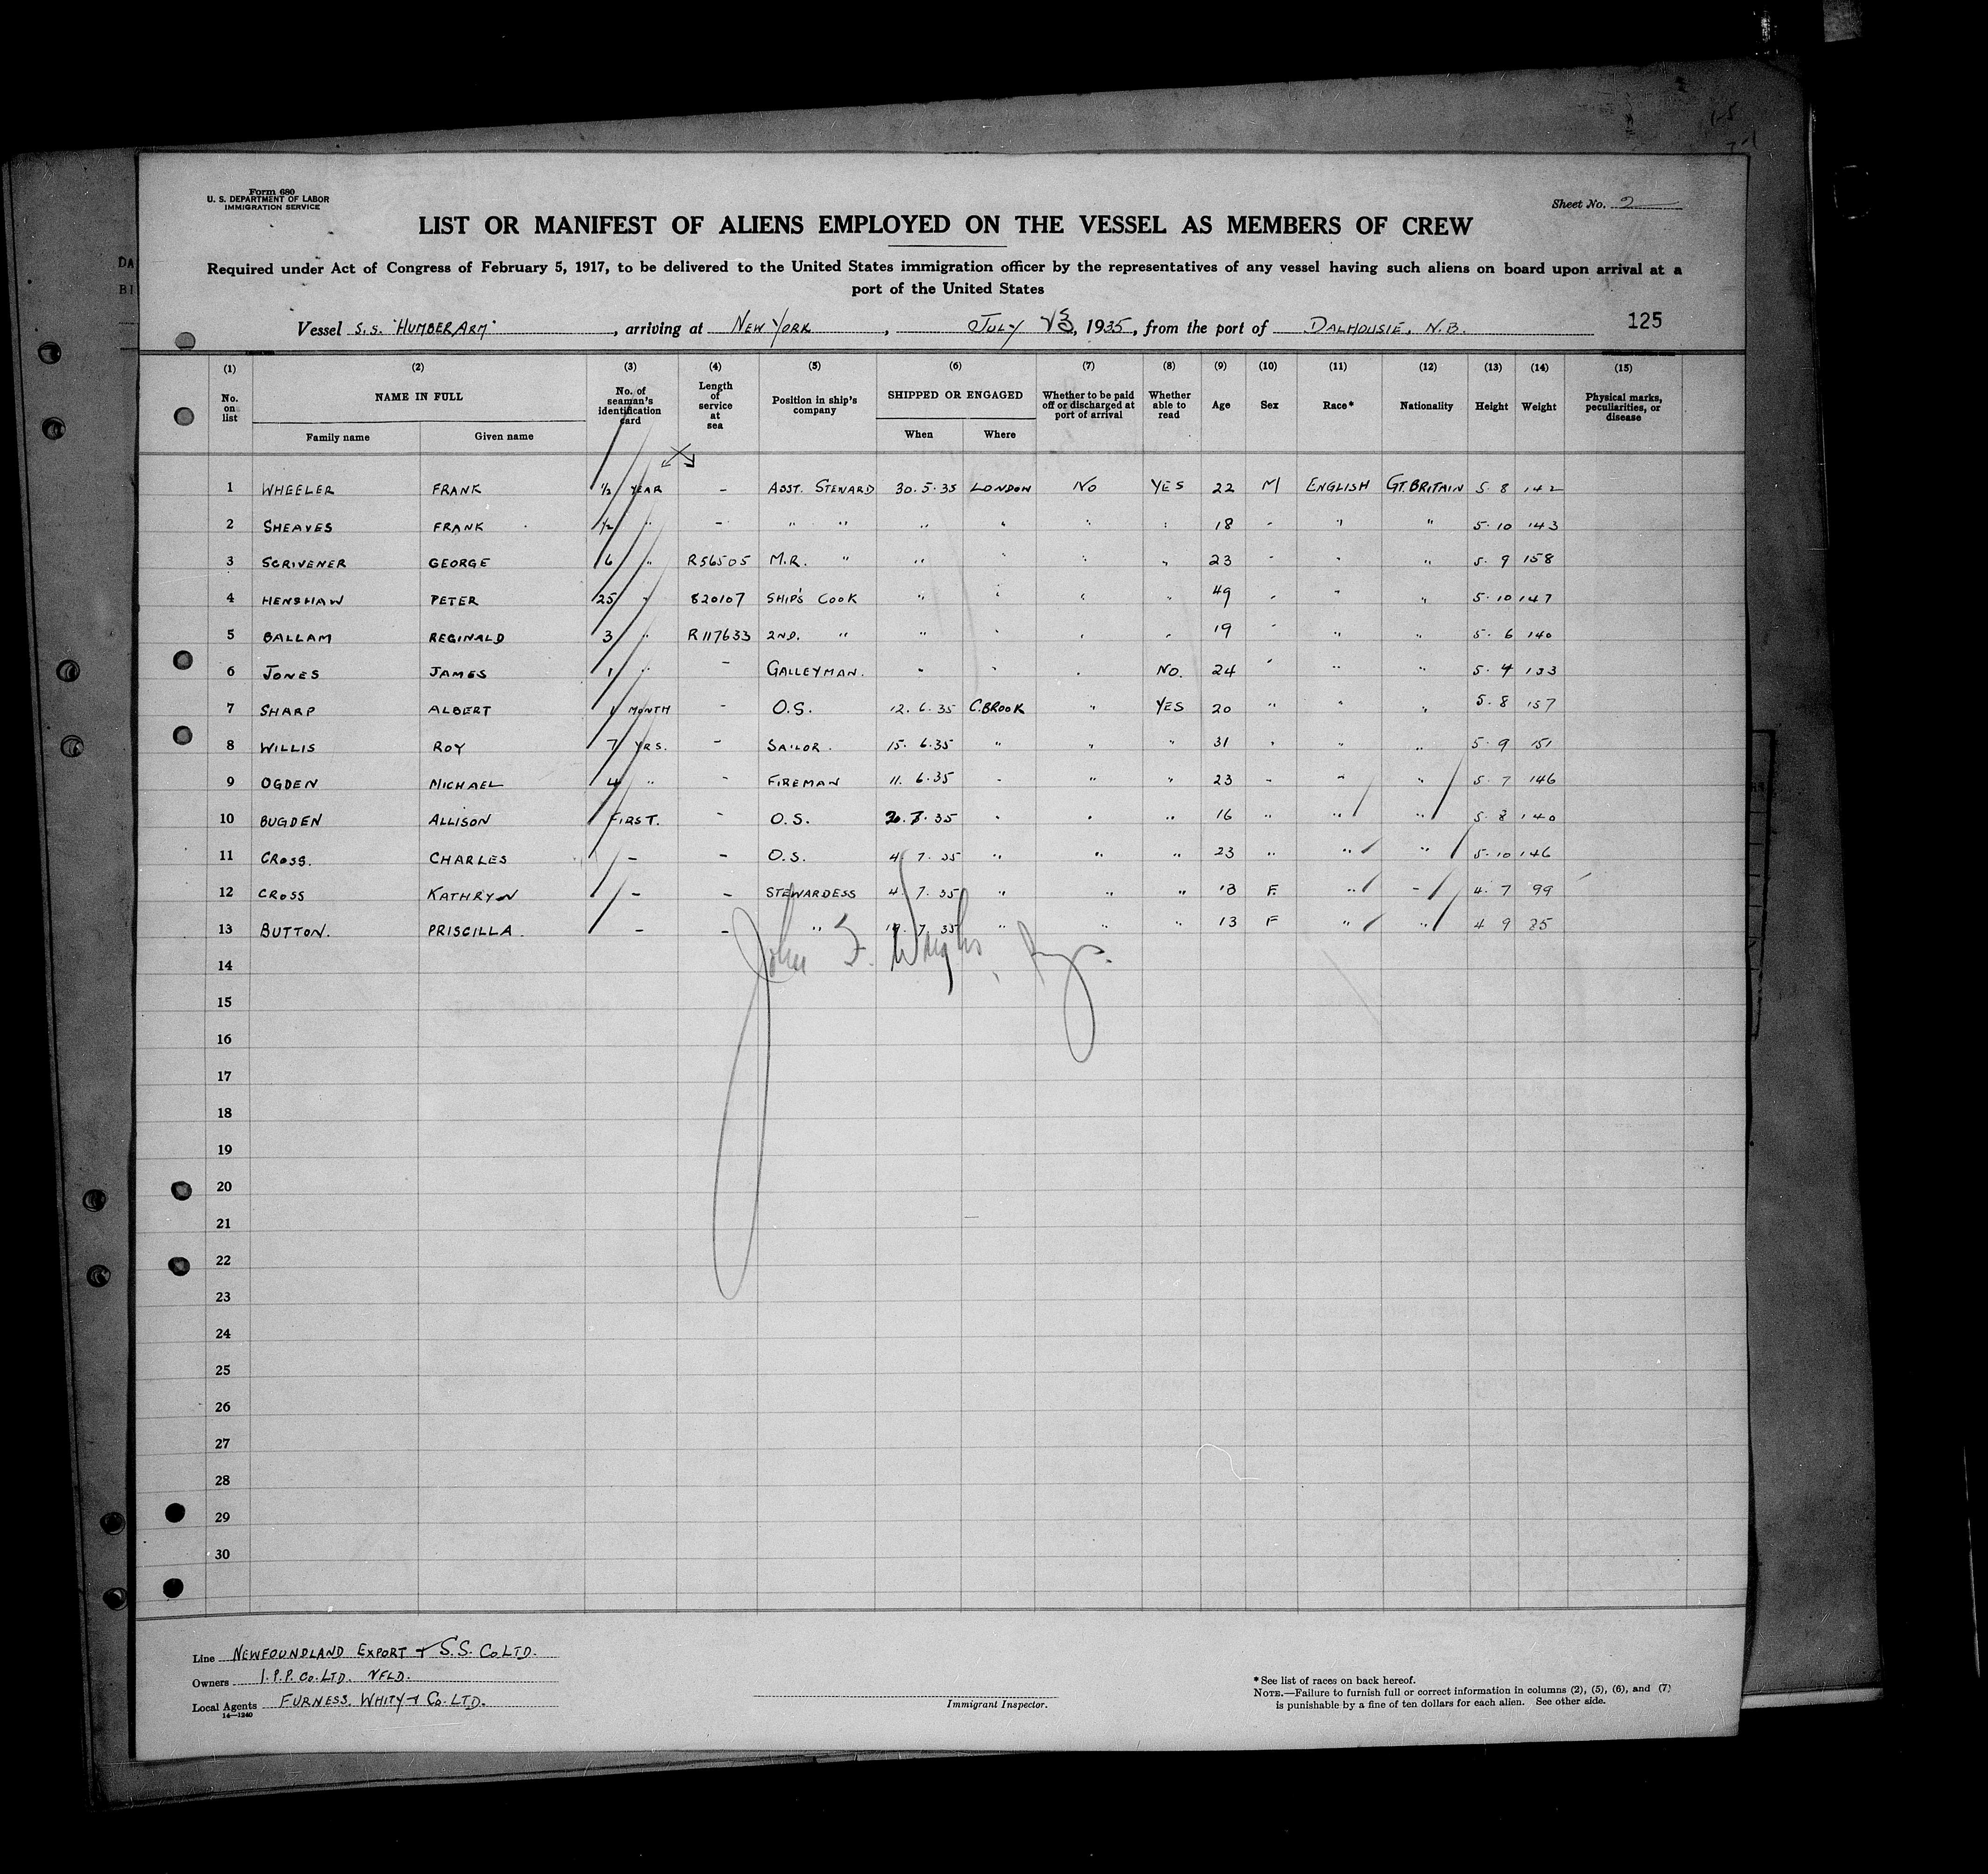 Form 680
U. S. DEPARTMENT OF LABOR
IMMIGRATION SERVICE
Sheet No. 2
LIST OR MANIFEST OF ALIENS EMPLOYED ON THE VESSEL AS MEMBERS OF CREW
Required under Act of Congress of February 5, 1917, to be delivered to the United States immigration officer by the representatives of any vessel having such aliens on board upon arrival at a
port of the United States
Vessel S.S. "HUMBER ARM", arriving at NEW YORK, JULY 1935, from the port of DALHOUSIE, N.B. 125
(1) (2) (3) (4) (5) (6) (7) (8) (9) (10) (11) (12) (13) (14) (15)
No. on list NAME IN FULL Family name Given name No. of seaman's identification card Length of service at sea Position in ship's company SHIPPED OR ENGAGED When Where Whether to be paid off or discharged at port of arrival Whether able to read Age Sex Race* Nationality Height Weight Physical marks, peculiarities, or disease
1 WHEELER FRANK ½ YEAR - ASST. STEWARD 30.5.35 LONDON NO YES 22 M ENGLISH GT. BRITAIN 5 8 142
2 SHEAVES FRANK ½ " - " " " " " " 18 " " " 5.10 143
3 SCRIVENER GEORGE 6 " R56505 M.R. " " " " " 23 " " " 5. 9 158
4 HENSHAW PETER 25 " 820107 SHIP'S COOK " " " " 49 " " " 5.10 147
5 BALLAM REGINALD 3 " R117633 2ND. " " " " " 19 " " " 5. 6 140
6 JONES JAMES 1 " - GALLEYMAN. " " " NO. 24 " " " 5. 4 133
7 SHARP ALBERT 1 MONTH - O.S. 12. 6. 35 C.BROOK " YES 20 " " " 5. 8 157
8 WILLIS ROY 7 YRS. - SAILOR. 15. 6.35 " " " 31 " " " 5. 9 151
9 OGDEN MICHAEL 4 " - FIREMAN 11. 6.35 " " " 23 " " " 5. 7 146
10 BUGDEN ALLISON FIRST. - O.S. .35 " " " 16 " " " 5. 8 140
11 CROSS. CHARLES - - O.S. 4. 7. 35 " " " 23 " " " 5.10 146
12 CROSS KATHRYN - - STEWARDESS 4. 7. 35 " " " F. " - 4. 7 99
13 BUTTON. PRISCILLA. - - " 7. 35 " " " 13 F " " 4 9 85
John
14
15
16
17
18
19
20
21
22
23
24
25
26
27
28
29
30
Line NEWFOUNDLAND EXPORT + S.S. CO LTD.
Owners I.P.P. CO. LTD. NFLD.
Local Agents FURNESS. WHITY + CO. LTD.
14—1240
Immigrant Inspector.
*See list of races on back hereof.
NOTE.—Failure to furnish full or correct information in columns (2), (5), (6), and (7)
is punishable by a fine of ten dollars for each alien. See other side.